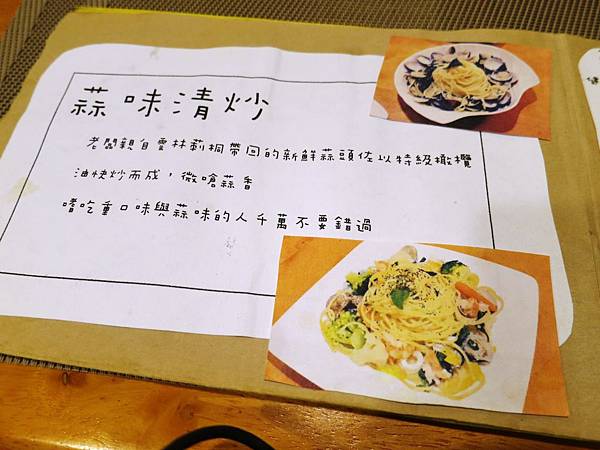 蒜味清炒
老闆親自雲林莿桐帶回的新鮮蒜頭佐以特級橄欖
油快炒而成，微嗆蒜香
嗜吃重口味與蒜味的人千萬不要錯過